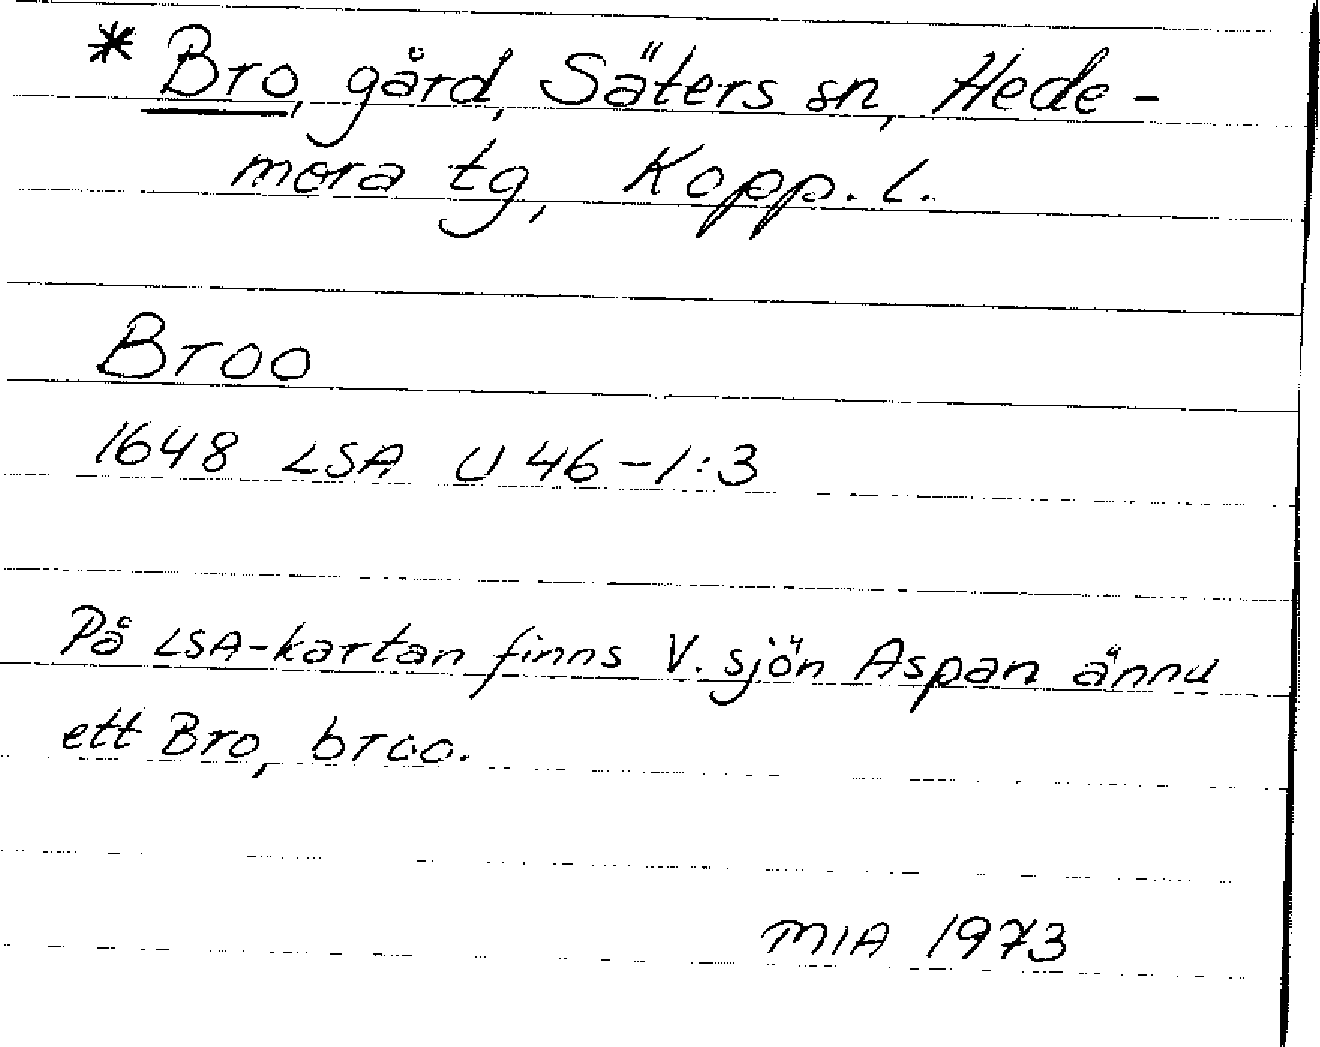 * Bro, gård, Säters sn, Hede-
mora tg, Kopp. l.
Broo
1648 LSA U 46-1:3
På LSA-kartan finns V. sjön Aspan ännu
ett Bro, broo.
MIA 1973